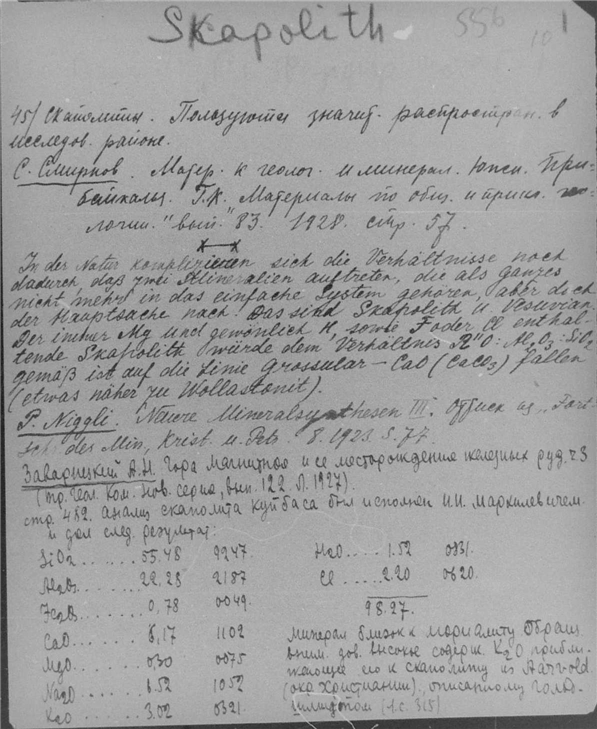 Skapolith
556
10
1
45/ Скаполиты. Пользуются значит. распростран. в
исследов. районе.
С. Смирнов. Матер. к геолог. и минерал. Южн. При-
байкалья. Г.К. Материалы по общ. и прикл. гео-
логии. "вып." 83. 1928. стр. 57.
In der Natur komplizieren sich die Verhältnisse noch
dadurch daß zwei Mineralien auftreten, die als ganzes
nicht mehr in das einfache System gehören, aber doch
der Hauptsache nach. Das sind Skapolith u. Vesuvian.
Der immer Mg und gewönlich H, sowie F oder Cl enthal-
tende Skapolith würde dem Verhältnis R"O : Al2O3 : SiO2
gemäß ist auf die Linie Grossular – CaO (CaCO3) fallen
(etwas näher zu Wollastonit).
P. Niggli. Neure Mineralsynthesen III. Оттиск из „Fort-
sch. des Min., Krist. u. Petr. 8. 1923. S. 77.
Заварицкий А.Н. Гора Магнитная и ее месторождения железных руд. ч 3
(Тр. Геол. Ком. Нов. серия, вып. 122 Л. 1927).
стр. 482. Анализ скаполита куйбаса был исполнен И.И. Маркилевичем
и дал след. результат:
SiO2 ....... 55.48 9247.
Al2O3 ....... 22.28 2187
Fe2O3 ....... 0,78 0049.
CaO ....... 6,17 1102
MgO ....... 030 0075
Na2O ....... 6.52 1052
K2O ....... 3.02 0321.
H2O ..... 1.52 0831.
Cl ..... 2.20 0620.
98.27.
Минерал близок к мариалиту Обращ.
вним. дов. высокое содерж. K2O прибли-
жающее его к скаполиту из Aarvold
(око Христиании), описанному Гольд-
шмидтом (l.c. 315)